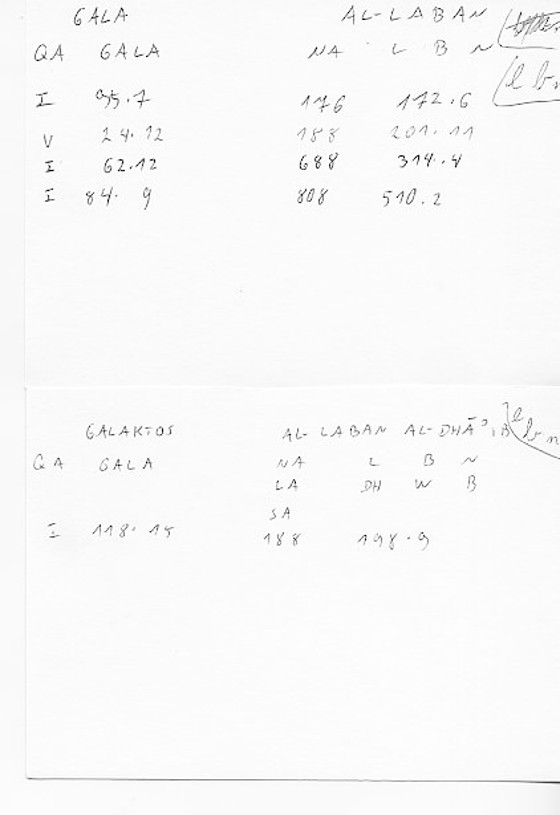 GALA AL-LABAN
QA GALA NA L B N l b n
I 95.7 176 172.6
V 24.12 188 201.11
I 62.12 688 314.4
I 84.9 808 510.2
GALAKTOS AL-LABAN AL-DHĀʾIB l b n
QA GALA NA L B N
LA DH W B
SA
I 118.15 188 198.9